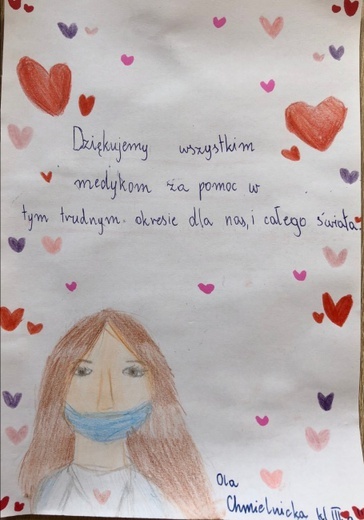 Dziękujemy wszystkim
medykom za pomoc w
tym trudnym okresie dla nas, i całego świata.
Ola
Chmielnicka kl III